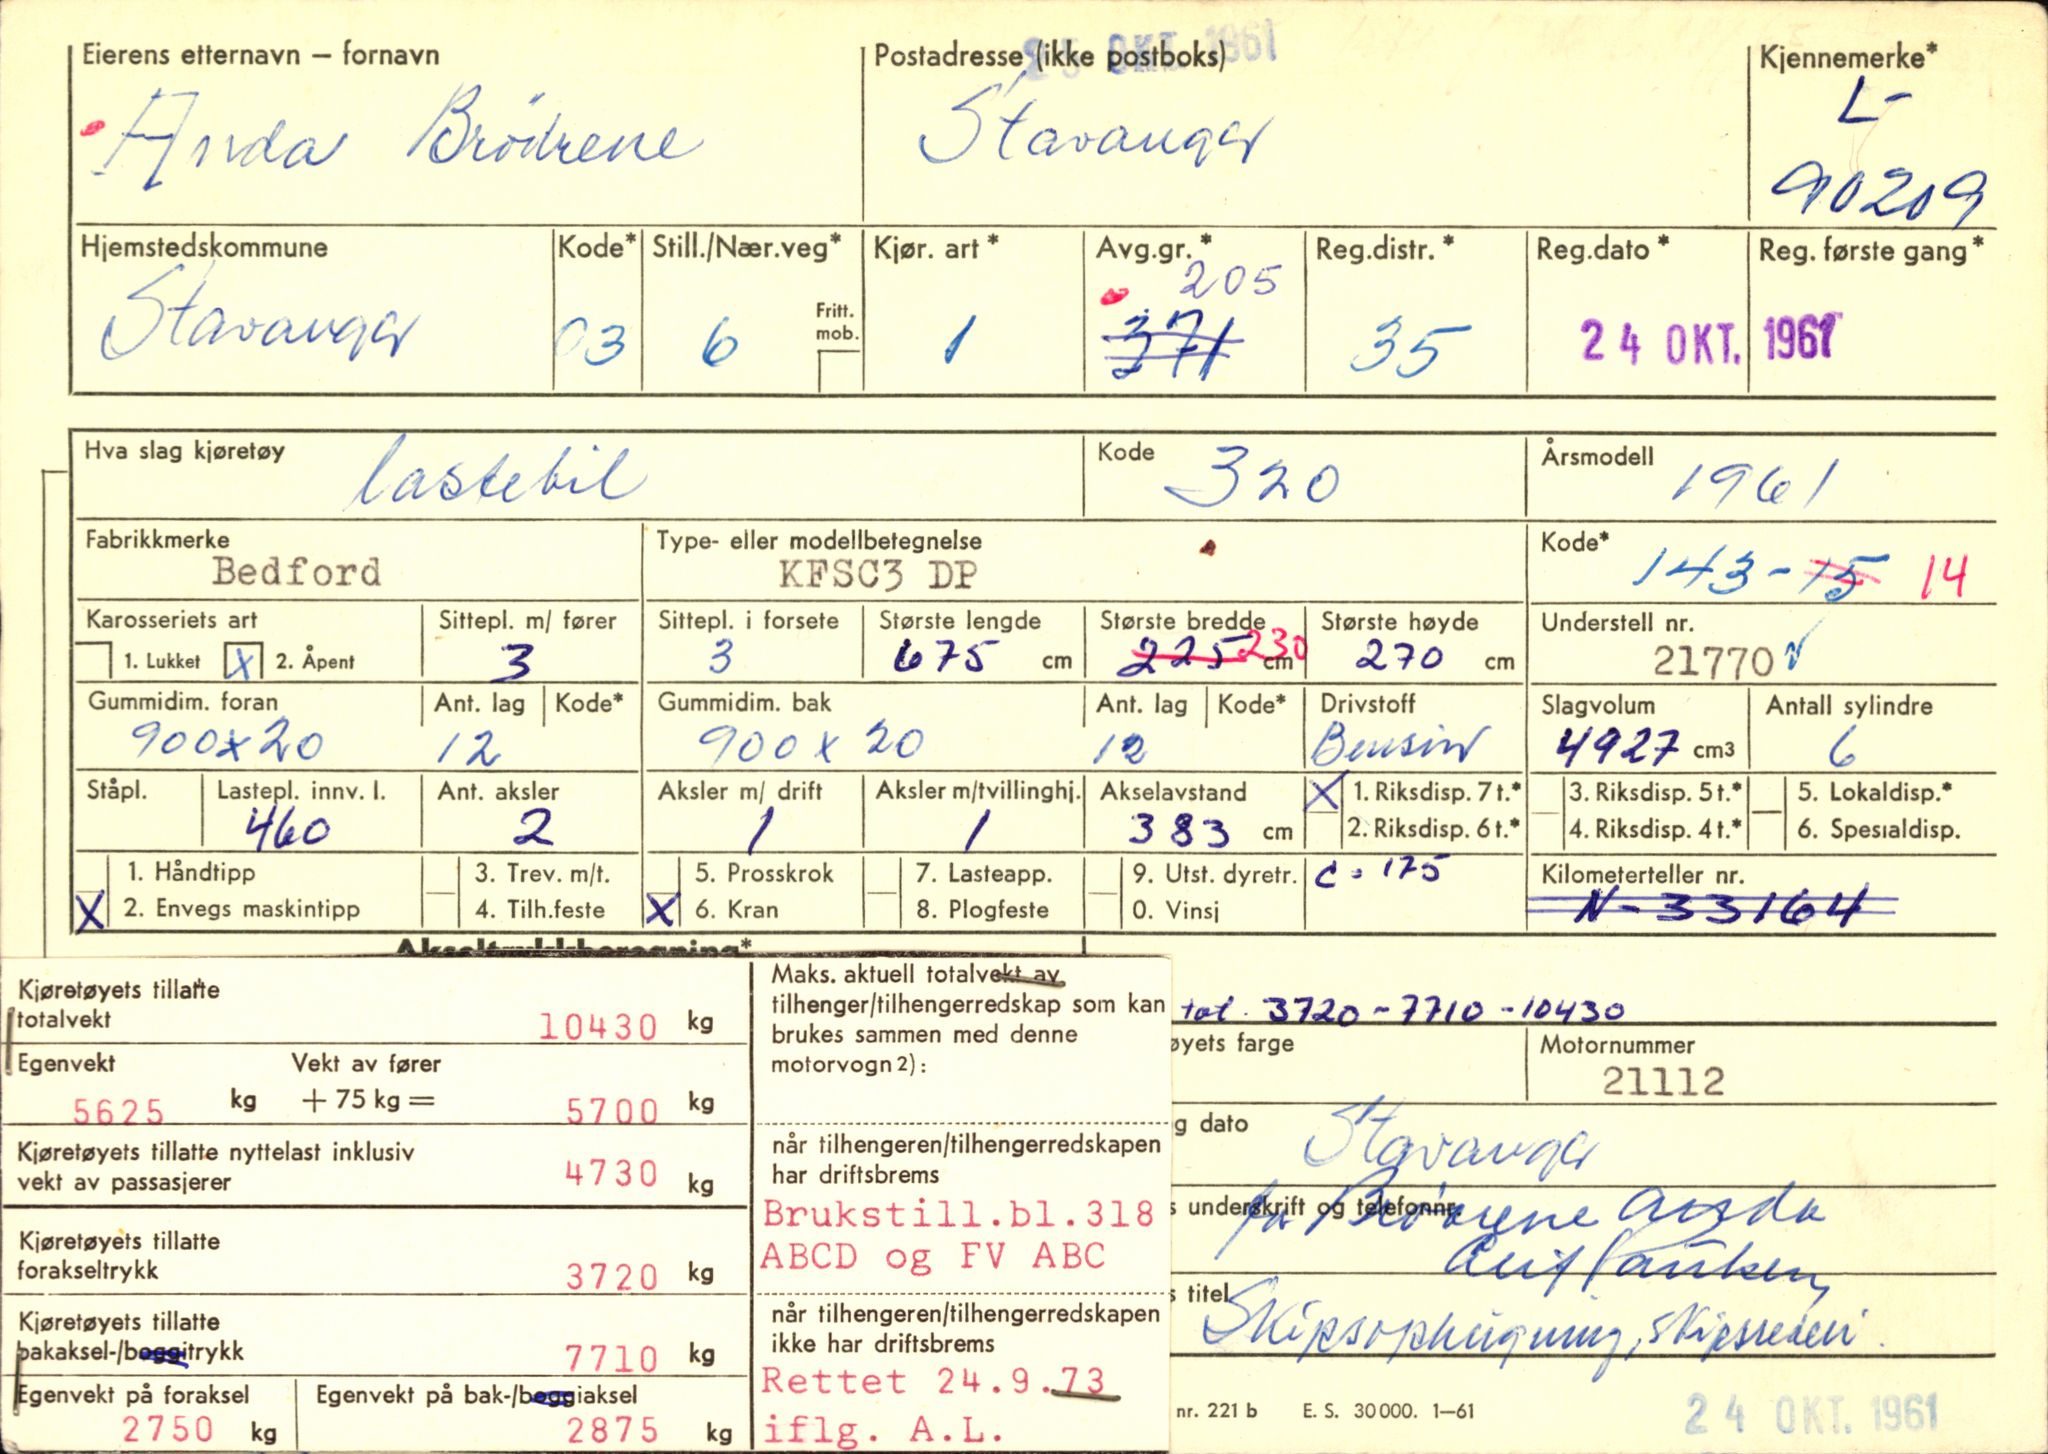 25 OKT. 1961
Eierens etternavn – fornavn
Postadresse (ikke postboks)
Kjennemerke*
Anda Brödrene
Stavanger
L-
90209
Hjemstedskommune
Kode*
Still./Nær.veg*
Kjør. art*
Avg.gr.*
Reg.distr.*
Reg.dato*
Reg. første gang*
Stavanger
03
6
Fritt. mob.
1
205
371
35
24 OKT. 1961
Hva slag kjøretøy
lastebil
Kode
320
Årsmodell
1961
Fabrikkmerke
Bedford
Type- eller modellbetegnelse
KFSC3 DP
Kode*
143-15 14
Karosseriets art
1. Lukket X 2. Åpent
Sittepl. m/ fører
3
Sittepl. i forsete
3
Største lengde
675 cm
Største bredde
225 230 cm
Største høyde
270 cm
Understell nr.
21770
Gummidim. foran
900x20
Ant. lag
12
Kode*
Gummidim. bak
900 x 20
Ant. lag
12
Kode*
Drivstoff
Bensin
Slagvolum
4927 cm3
Antall sylindre
6
Ståpl.
Lastepl. innv. l.
460
Ant. aksler
2
Aksler m/ drift
1
Aksler m/tvillinghj.
1
Akselavstand
383 cm
X 1. Riksdisp. 7 t.*
2. Riksdisp. 6 t.*
3. Riksdisp. 5 t.*
4. Riksdisp. 4 t.*
5. Lokaldisp.*
6. Spesialdisp.
1. Håndtipp
X 2. Envegs maskintipp
3. Trev. m/t.
4. Tilh.feste
5. Prosskrok
X 6. Kran
7. Lasteapp.
8. Plogfeste
9. Utst. dyretr.
0. Vinsj
c = 175
Kilometerteller nr.
N-33164
Akseltrykkberegning*
Kjøretøyets tillatte
totalvekt
10430 kg
Egenvekt
5625 kg
Vekt av fører
+ 75 kg =
5700 kg
Kjøretøyets tillatte nyttelast inklusiv
vekt av passasjerer
4730 kg
Kjøretøyets tillatte
forakseltrykk
3720 kg
Kjøretøyets tillatte
bakaksel-/boggitrykk
7710 kg
Egenvekt på foraksel
2750 kg
Egenvekt på bak-/boggiaksel
2875 kg
Maks. aktuell totalvekt av
tilhenger/tilhengerredskap som kan
brukes sammen med denne
motorvogn 2) :
når tilhengeren/tilhengerredskapen
har driftsbrems
Brukstill.bl.318
ABCD og FV ABC
når tilhengeren/tilhengerredskapen
ikke har driftsbrems
Rettet 24.9.73
iflg. A.L.
tol. 3720-7710-10430
øyets farge
Motornummer
21112
g dato
Stavanger
s underskrift og telefonnr.
for Brödrene Anda
s titel
Skipsophugning, skipsrederi.
nr. 221 b E. S. 30000. 1–61
24 OKT. 1961